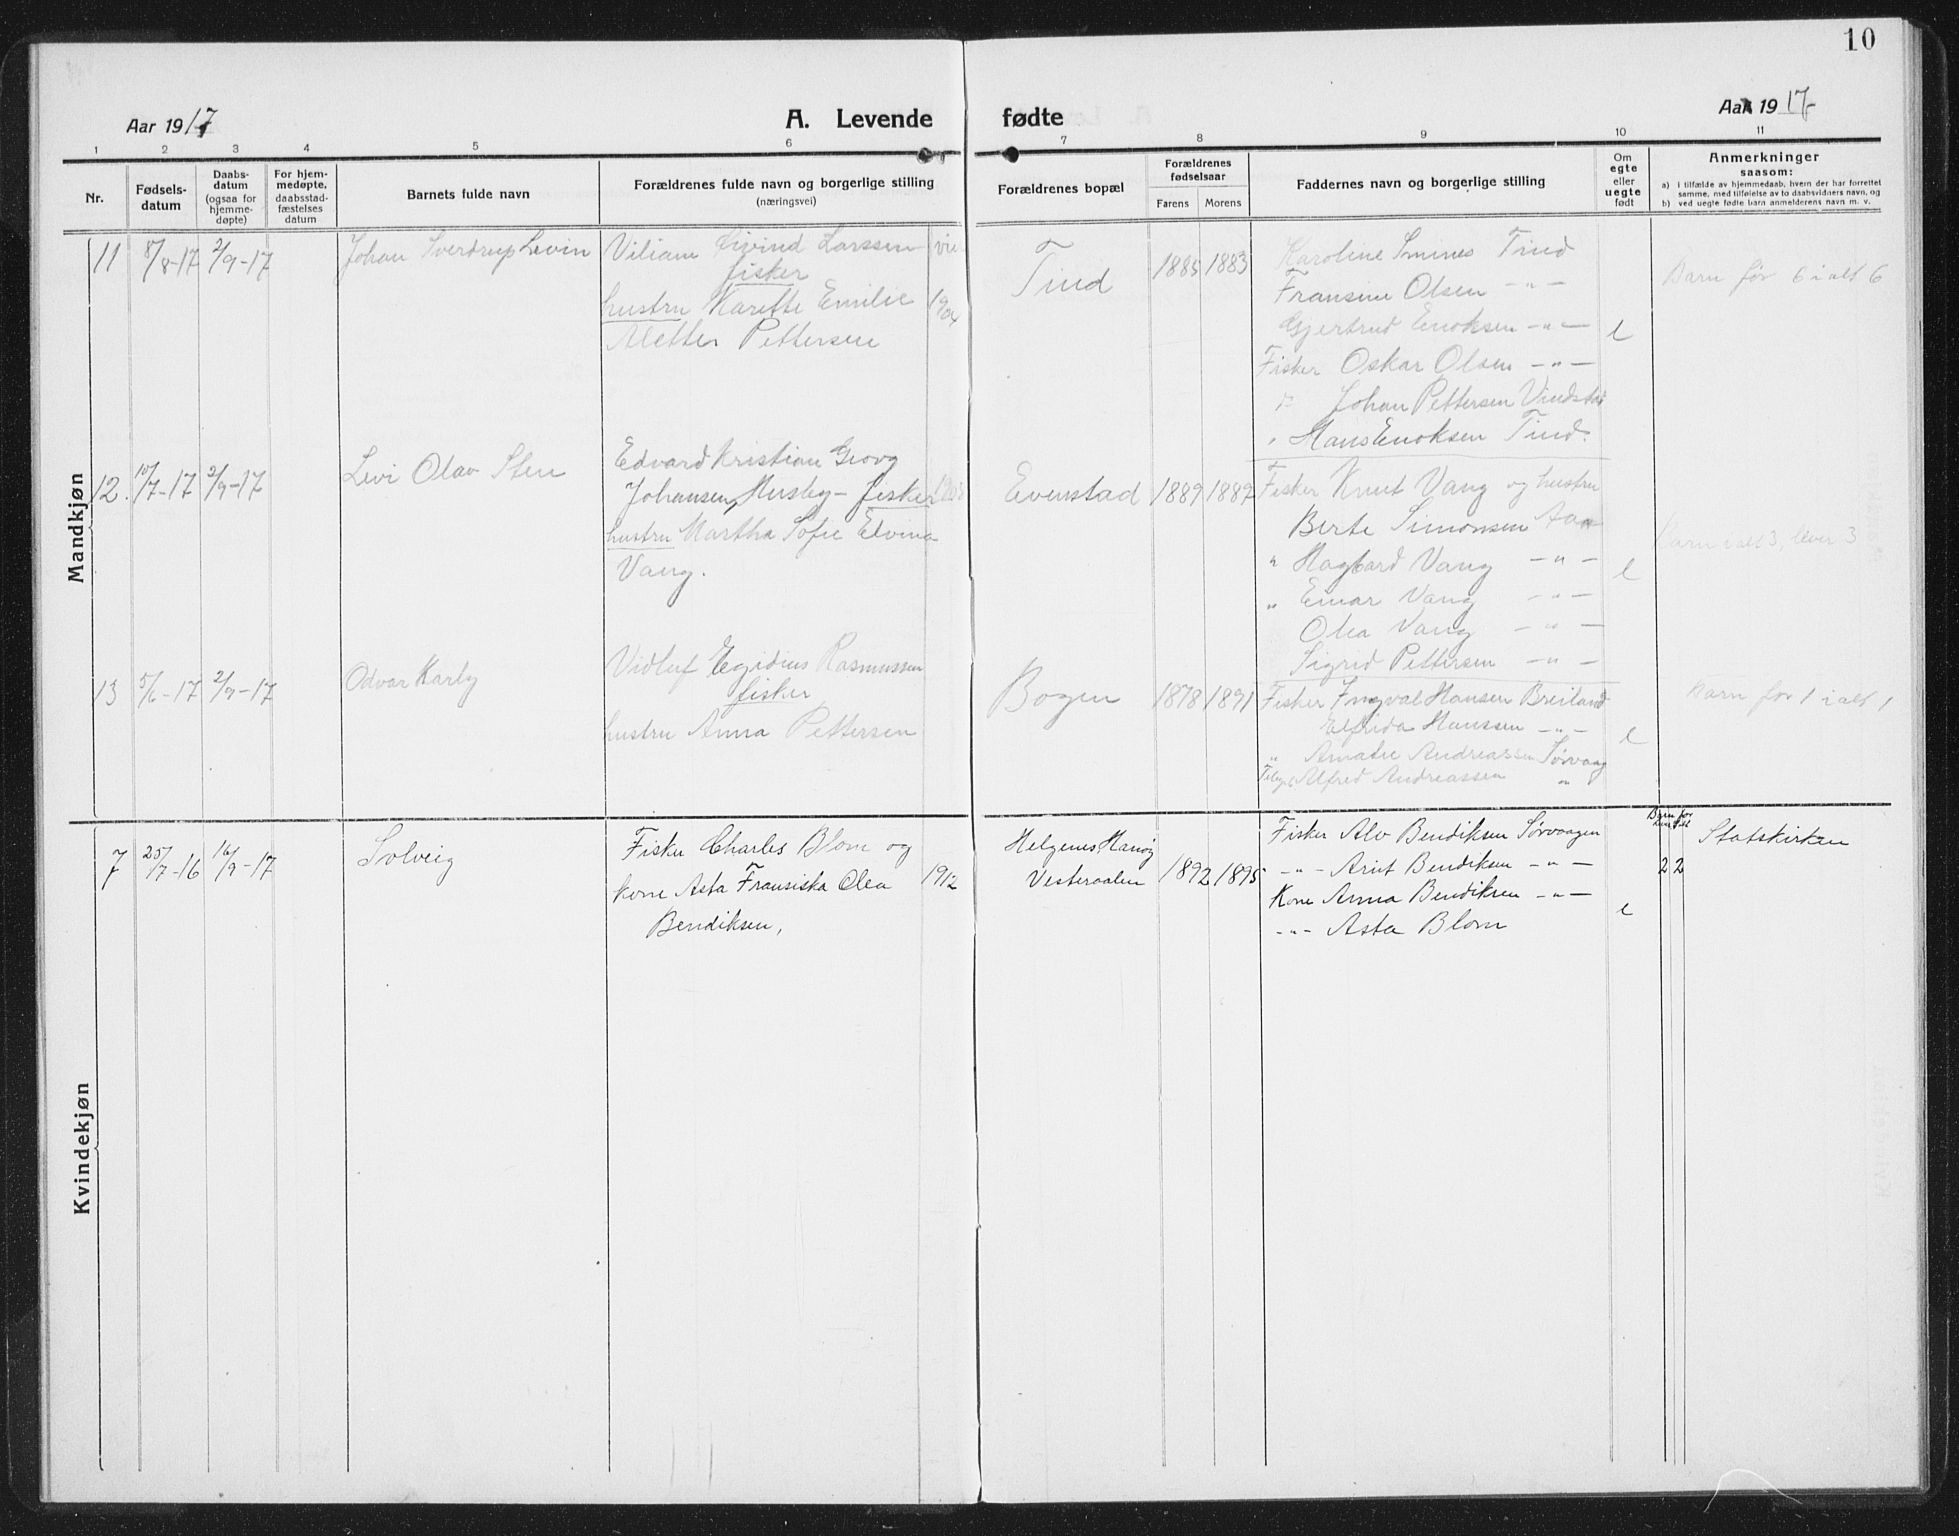 10
Aar 1917
A. Levende
fødte
Aar 1917
1 2 3 4 5 6 7 8 9 10 11
Nr.
Fødsels-
datum
Daabs-
datum
(ogsaa for
hjemme-
døpte)
For hjem-
medøpte,
daabsstad-
fæstelses
datum
Barnets fulde navn
Forældrenes fulde navn og borgerlige stilling
(næringsvei)
Forældrenes bopæl
Forældrenes
fødselsaar
Farens Morens
Faddernes navn og borgerlige stilling
Om
egte
eller
uegte
født
Anmerkninger
saasom:
a) i tilfælde av hjemmedaab, hvem der har forrettet
samme, med tilføielse av to daabsvidners navn, og
b) ved uegte fødte barn anmelderens navn m. v.
Mandkjøn
11 8/8-17 2/9-17 Johan Sverdrup Levin
Viliam Eivind Larssen
fisker
hustru Karette Emilie
Alette Pettersen
vie
1904
Tind
1885 1883
Karoline Tind
Fransine Olsen -"-
Gjertrud Enoksen -"-
Fisker Oskar Olsen -"-
" Johan Pettersen Vindstad
" Hans Enoksen Tind.
e
Barn før 6 i alt 6
12. 10/7-17 2/9-17 Levi Olav Sten
Edvard Kristian Georg
Johansen Husby - fisker
hustru Martha Sofie Elvina
Vang.
Evenstad
1889 1889
Fisker Knut Vang og hustru
Berte Simonsen Aa
" Hagbard Vang -"-
" Einar Vang -"-
Olea Vang -"-
Sigrid Pettersen -"-
e
Barn i alt 3, lever 3
13 5/6-17 2/9-17 Odvar Karly
Vidluf Egidius Rasmussen
fisker
hustru Anna Pettersen
Bogen
1878 1891
Fisker Ingval Hansen Breiland
Elfrida Hanssen -"-
" Amalie Andreassen Sørvaag
Alfred Andreassen "
e
Barn før 1 i alt 1
Kvindekjøn
7 25/7-16 16/9-17 Solveig
Fisker Charles Blom og
kone Asta Fransiska Olea
Bendiksen,
1912
Helgenes, Hanøy
Vesteraalen
1892 1895
Fisker Alv Bendiksen Sørvaagen
-"- Arnt Bendiksen -"-
Kone Anna Bendiksen -"-
-"- Asta Blom
e
Barn før
2 2
Statskirken